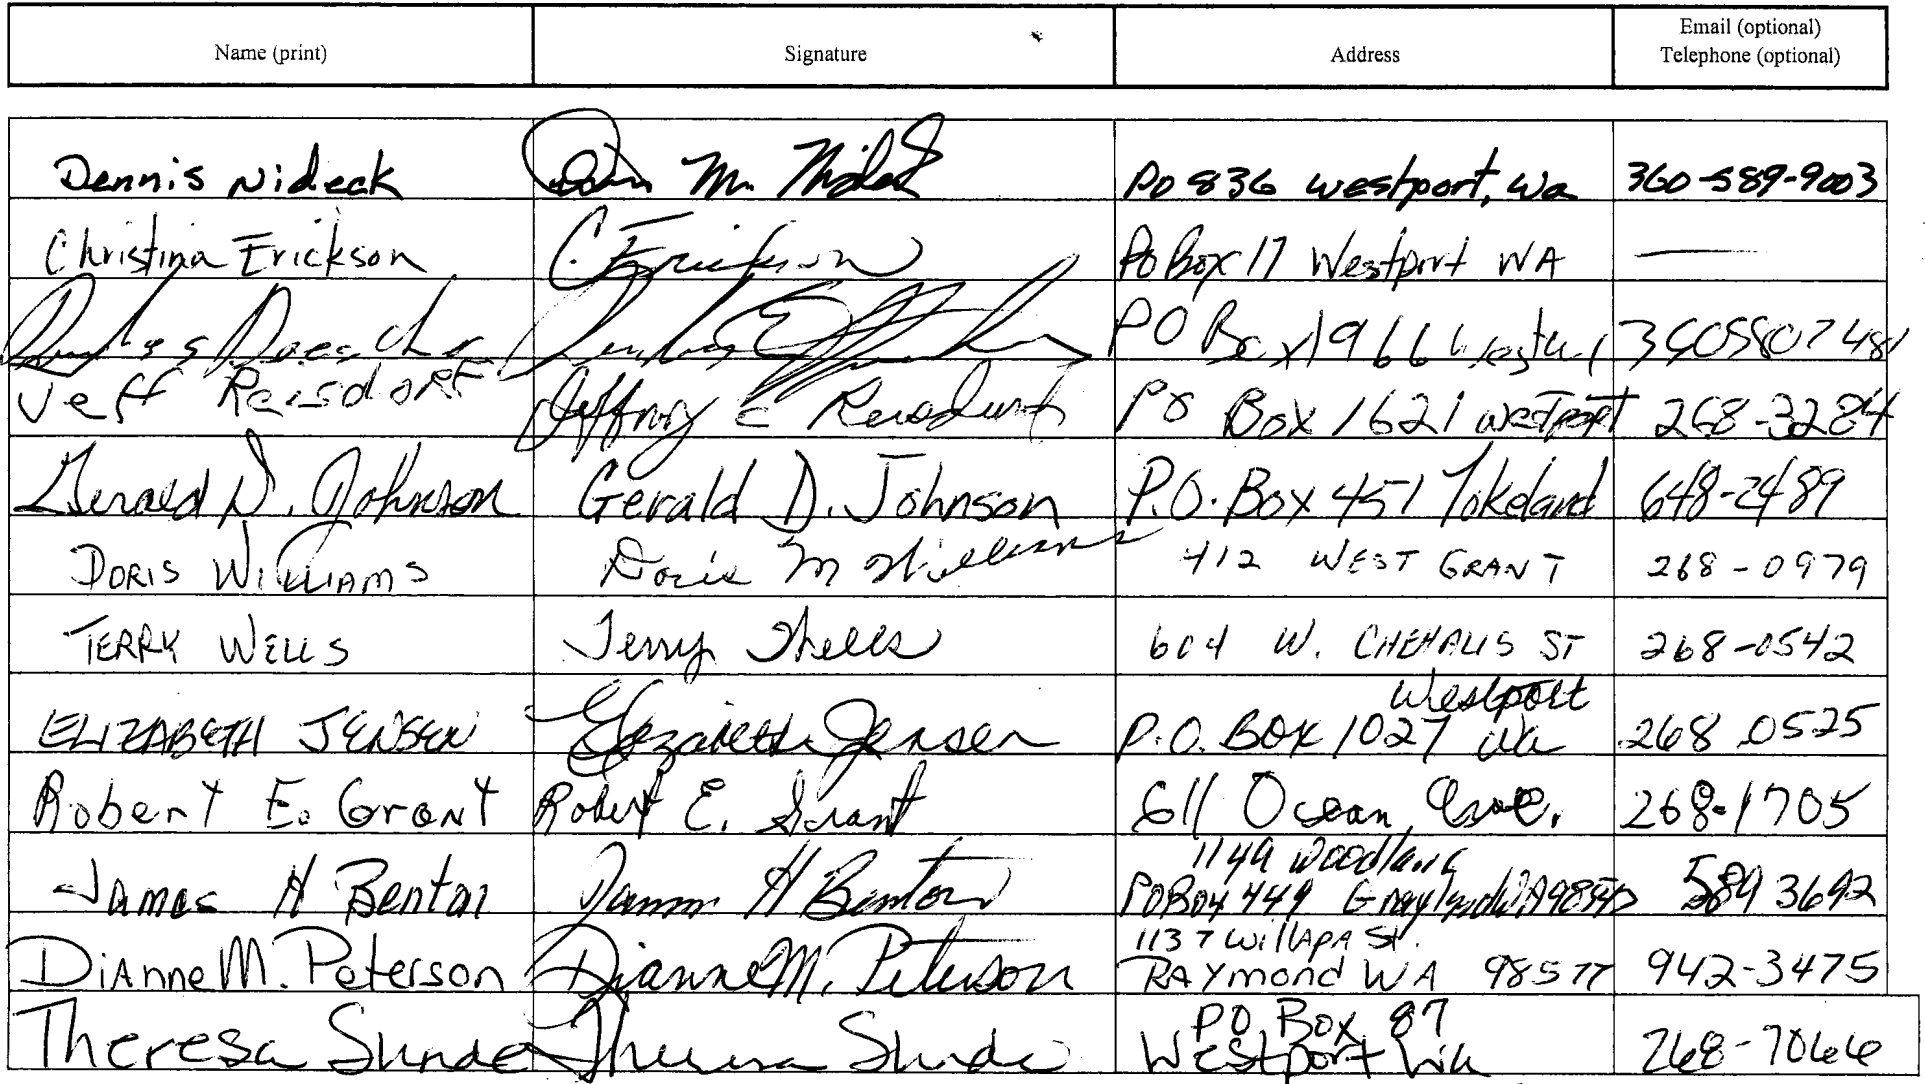 Name (print) Signature Address Email (optional)
Telephone (optional)
Dennis Nideck M. PO 836 Westport, Wa 360-589-9003
Christina Erickson C. Erickson PO Box 17 Westport WA —
PO Box 1966 3605807481
Jeff Reisdorf Jeffrey C Reisdorf PO Box 1621 Westport 268-3284
Gerald D. Johnson Gerald D. Johnson P.O. Box 451 Tokeland 648-2489
DORIS WILLIAMS Doris M Williams 412 WEST GRANT 268-0979
TERRY WELLS Terry Wells 604 W. CHEHALIS ST 268-0542
ELIZABETH JENSEN Elizabeth Jensen P.O. BOX 1027 Westport Wa 268 0525
Robert E. Grant Robert E. Grant 611 Ocean Ave. 268-1705
James H Benton James H Benton 1149 Woodland
PO Box 449 Grayland WA 98547 589 3692
Dianne M. Peterson Dianne M. Peterson 1137 Willapa St.
RAYmond WA 98577 942-3475
Theresa Sunde Theresa Sunde PO Box 87
Westport Wa 268-7066